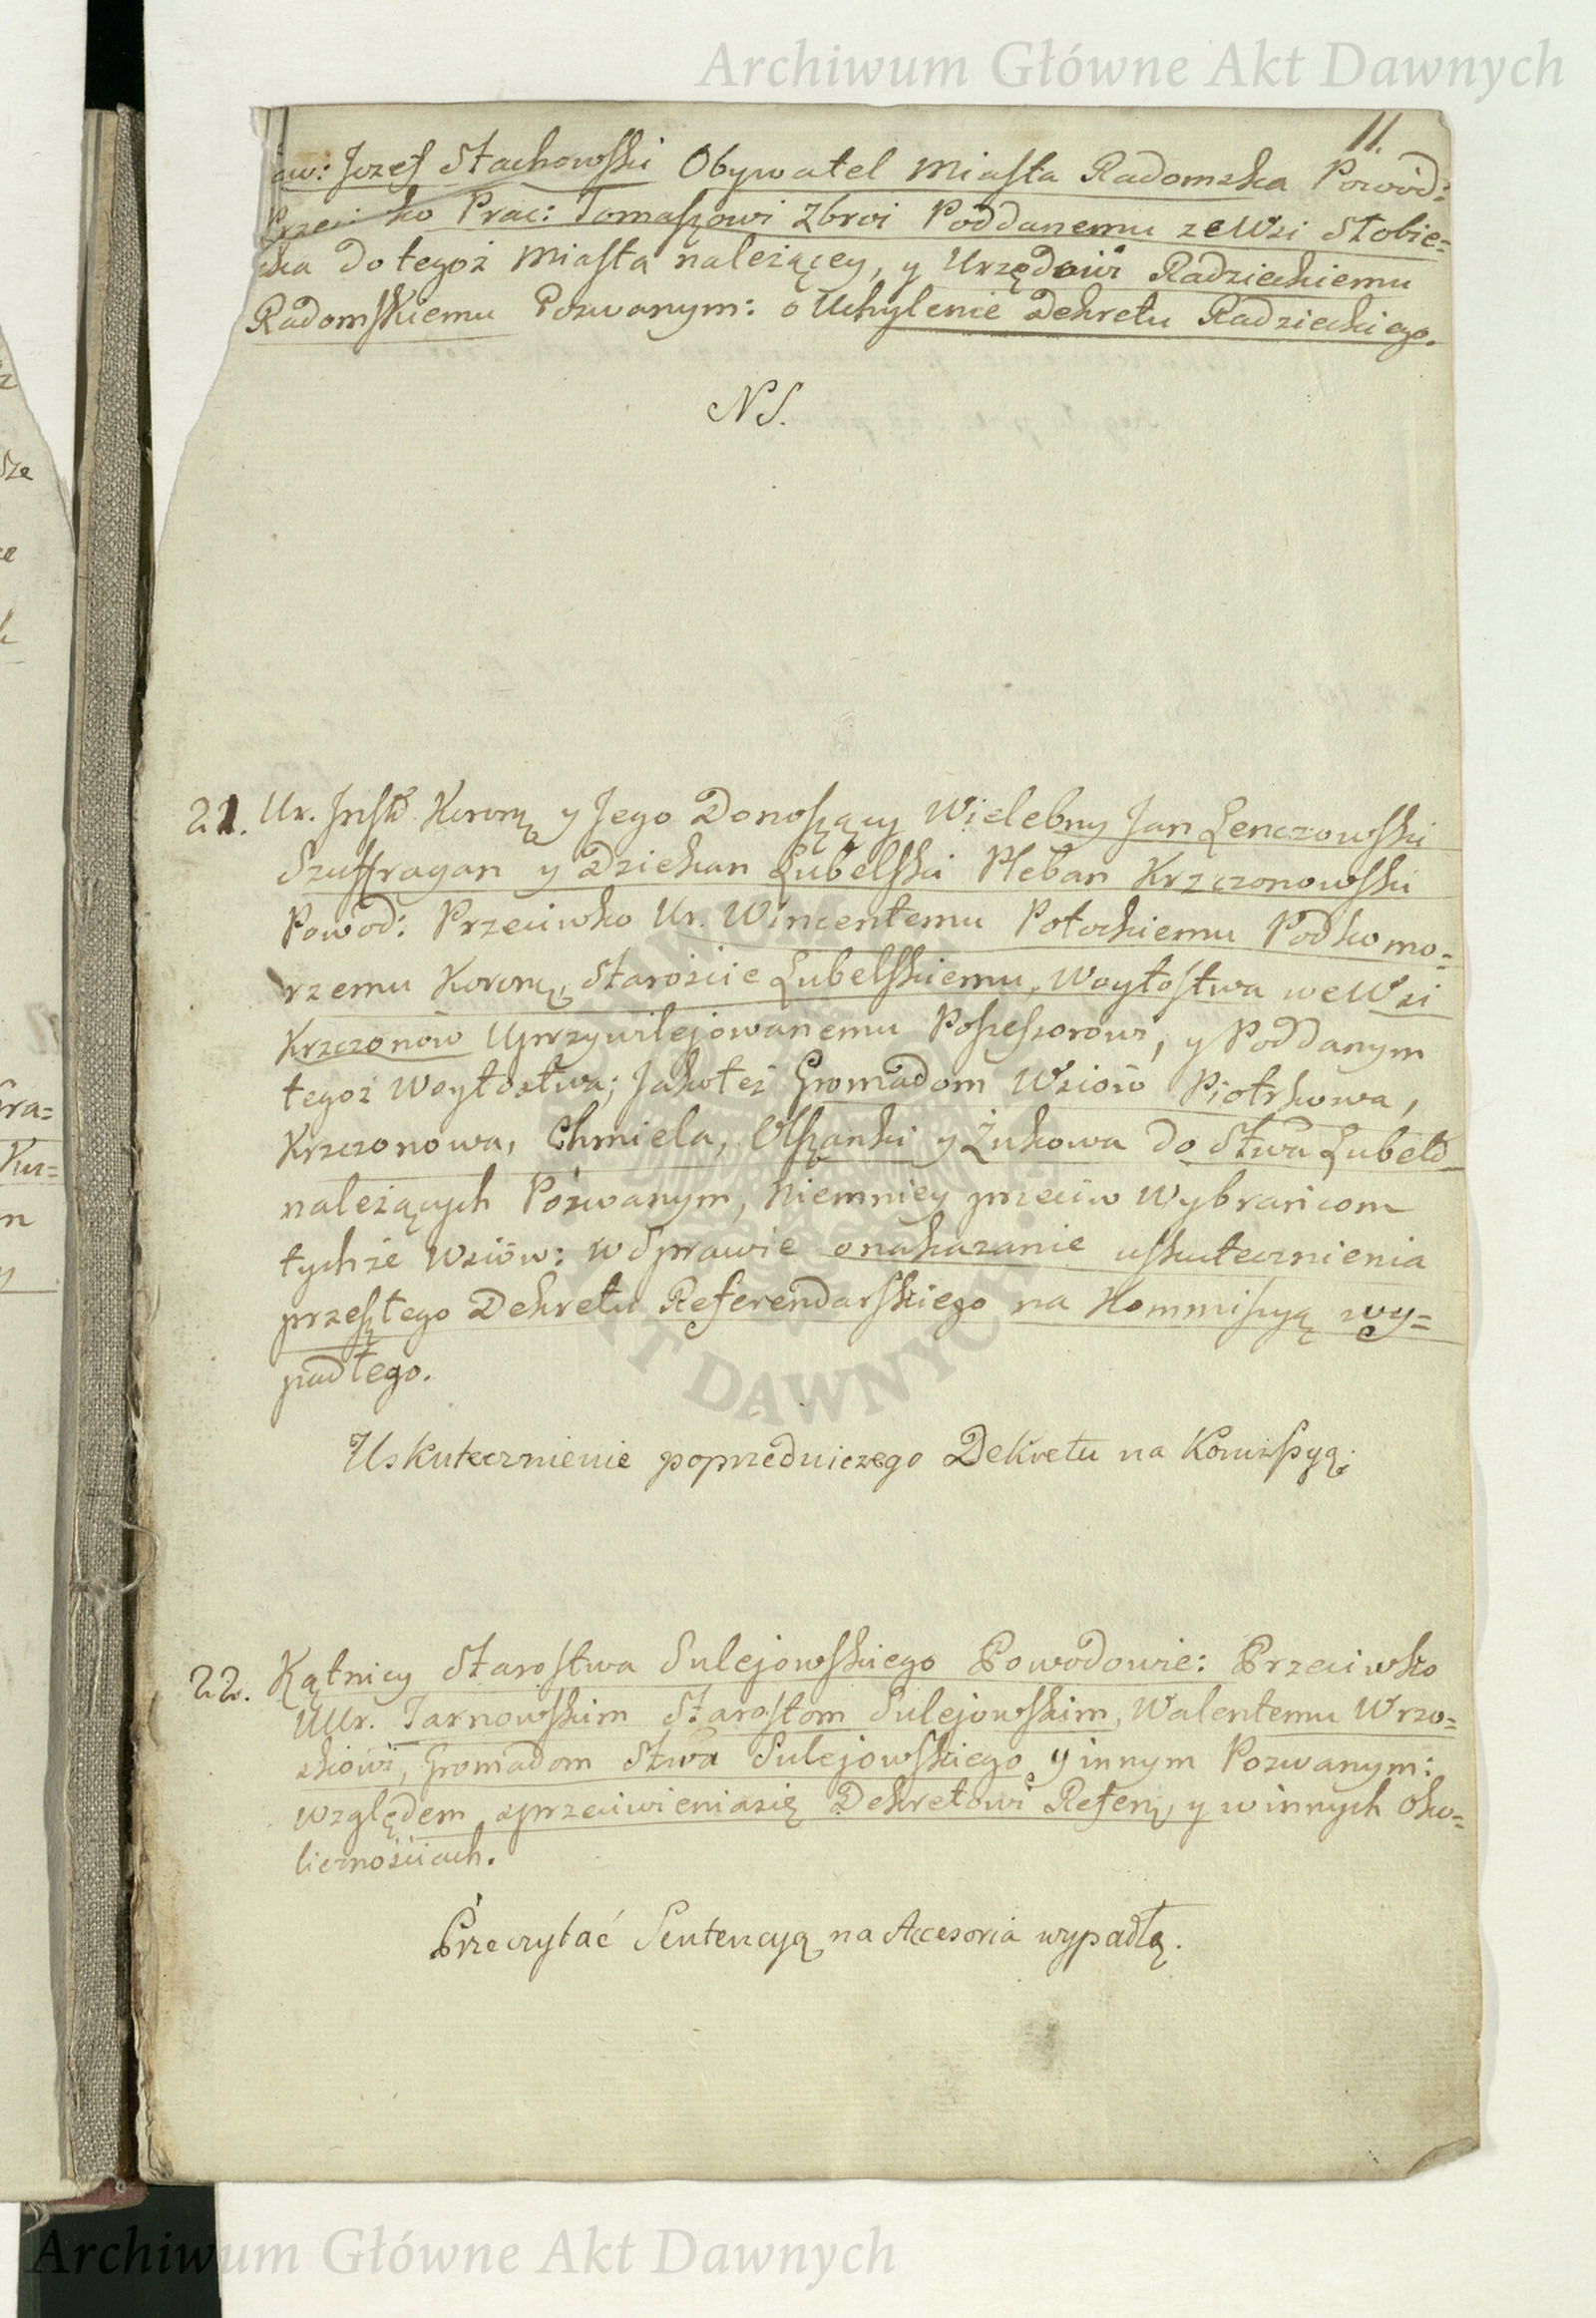 Archiwum Główne Akt Dawnych
11.
aw: Jozef Stachowski Obywatel Miasta Radomska Powód:
Przeciwko Prac: Tomaszowi Zbroi Poddanemu ze Wsi Stobie=
cka do tegoż Miasta należącey, y Urzędowi Radzieckiemu
Radomskiemu Pozwanym: o Uchylenie Dekretu Radzieckiego.
NS.
21. Ur. Instt Koronny y Jego Donoszący Wielebny Jan Lenczowski
Szuffragan y Dziekan Lubelski Pleban Krzczonowski
Powod: Przeciwko Ur. Wincentemu Potockiemu Podkomo=
rzemu Koronn, Starościie Lubelskiemu, Woytostwa we Wsi
Krzczonów Uprzywilejowanemu Possessorowi, y Poddanym
tegoż Woytostwa; Jakoteż Gromadom Wsiów Piotrkowa,
Krzczonowa, Chmiela, Olszanki y Żukowa do Stwa Lubel
należących Pozwanym, Niemniey przeciw Wybrańcom
tychże Wsiów: w Sprawie o nakazanie uskutecznienia
przeszłego Dekretu Referendarskiego na Kommissyą wy=
padłego.
Uskutecznienie poprzedniczego Dekretu na Komissyą.
22. Kątnicy Starostwa Sulejowskiego Powodowie: Przeciwko
UUr. Tarnowskim Starostom Sulejowskim, Walentemu Wrzo=
skowi, Gromadom Stwa Sulejowskiego y innym Pozwanym:
względem sprzeciwienia się Dekretowi Referen, y w innych oko=
licznościach.
Przeczytać Sentencyą na Accesoria wypadłą.
Archiwum Główne Akt Dawnych